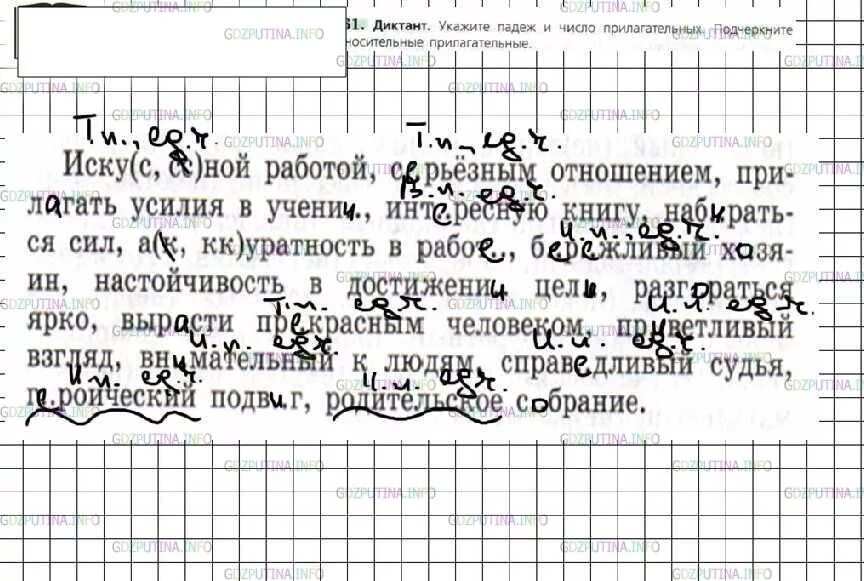 61. Диктант. Укажите падеж и число прилагательных. Подчеркните
носительные прилагательные.
Т.п., ед.ч. Т.п., ед.ч.
Иску(с, сс)ной работой, серьёзным отношением, при-
В.п. ед.ч.
лагать усилия в учении, интересную книгу, набирать-
И.п. ед.ч.
ся сил, а(к, кк)уратность в работе, бережливый хозя-
ин, настойчивость в достижении цели, разгораться
Т.п. ед.ч. И.п. ед.ч.
ярко, вырасти прекрасным человеком, приветливый
И.п. ед.ч. И.п. ед.ч.
взгляд, внимательный к людям, справедливый судья,
И.п. ед.ч. И.п. ед.ч.
героический подвиг, родительское собрание.
GDZPUTINA.INFO